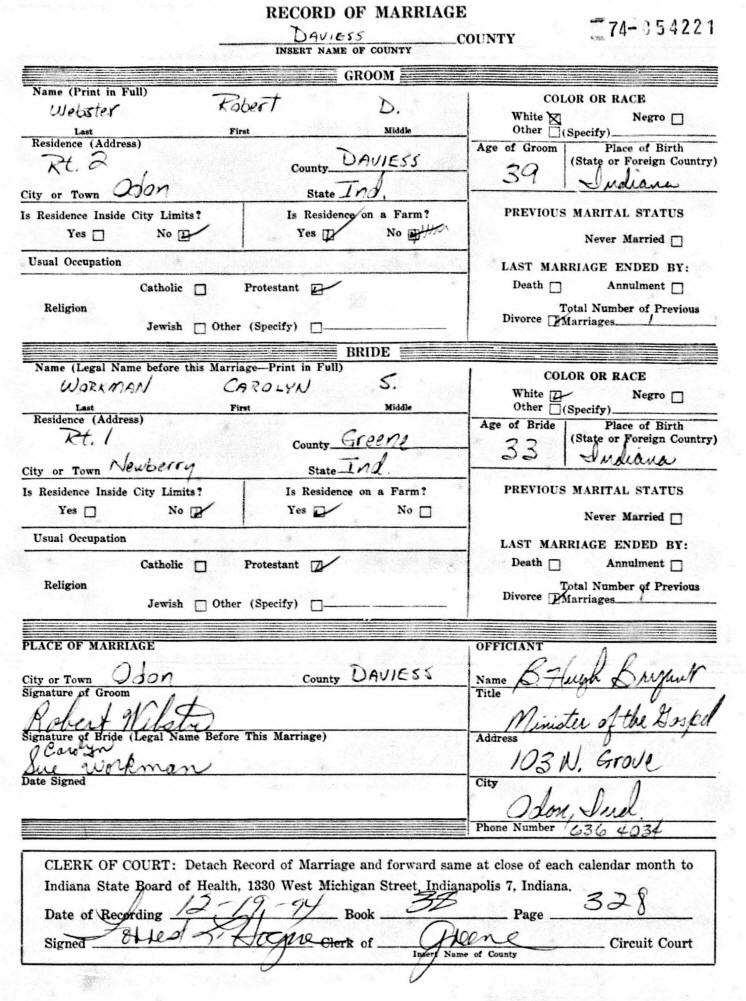 RECORD OF MARRIAGE
DAVIESS COUNTY
INSERT NAME OF COUNTY
74-054221
GROOM
Name (Print in Full)
Webster Robert D.
Last First Middle
Residence (Address)
Rt. 2 County DAVIESS
City or Town Odon State Ind.
Is Residence Inside City Limits? Is Residence on a Farm?
Yes No Yes No
Usual Occupation
Catholic Protestant
Religion
Jewish Other (Specify)
COLOR OR RACE
White Negro
Other (Specify)
Age of Groom Place of Birth
(State or Foreign Country)
39 Indiana
PREVIOUS MARITAL STATUS
Never Married
LAST MARRIAGE ENDED BY:
Death Annulment
Total Number of Previous
Divorce Marriages 1
BRIDE
Name (Legal Name before this Marriage—Print in Full)
WORKMAN CAROLYN S.
Last First Middle
Residence (Address)
Rt. 1 County Greene
City or Town Newberry State Ind.
Is Residence Inside City Limits? Is Residence on a Farm?
Yes No Yes No
Usual Occupation
Catholic Protestant
Religion
Jewish Other (Specify)
COLOR OR RACE
White Negro
Other (Specify)
Age of Bride Place of Birth
(State or Foreign Country)
33 Indiana
PREVIOUS MARITAL STATUS
Never Married
LAST MARRIAGE ENDED BY:
Death Annulment
Total Number of Previous
Divorce Marriages 1
PLACE OF MARRIAGE
City or Town Odon County DAVIESS
Signature of Groom
Robert Webster
Signature of Bride (Legal Name Before This Marriage)
Carolyn
Sue Workman
Date Signed
OFFICIANT
Name B. Hugh Bryant
Title
Minister of the Gospel
Address
103 N. Grove
City
Odon, Ind.
Phone Number 636 4034
CLERK OF COURT: Detach Record of Marriage and forward same at close of each calendar month to
Indiana State Board of Health, 1330 West Michigan Street, Indianapolis 7, Indiana.
Date of Recording 12-19-74 Book 38 Page 328
Signed Clerk of Greene Circuit Court
Insert Name of County